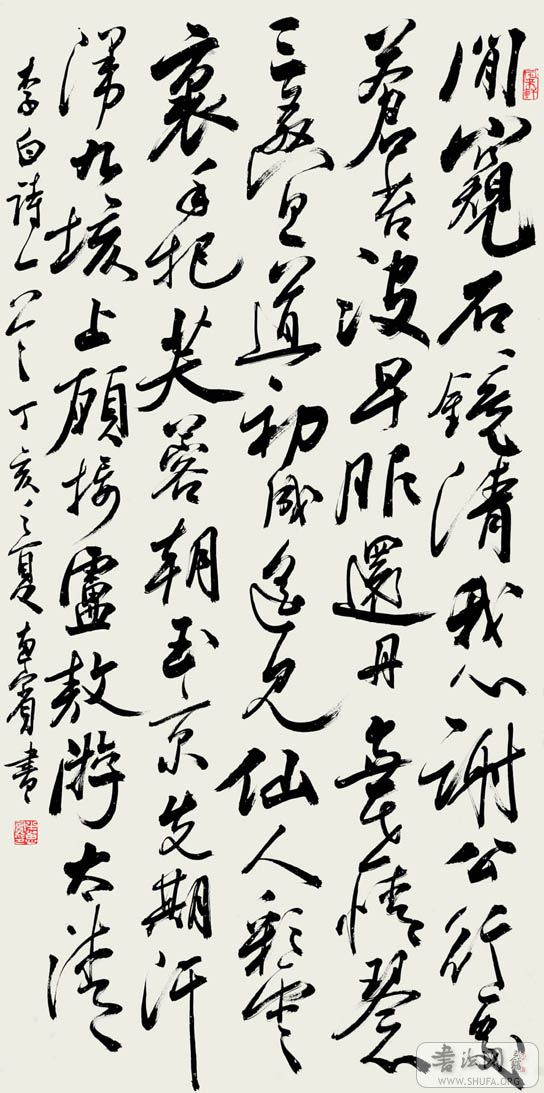 閒窺石鏡清我心謝公行處
蒼苔没早服還丹無世情琴心
三疊道初成遥見仙人彩雲
裏手把芙蓉朝玉京先期汗
漫九垓上願接盧敖游太清
李白詩一首丁亥之夏 賓書
書法网
WWW.SHUFA.COM